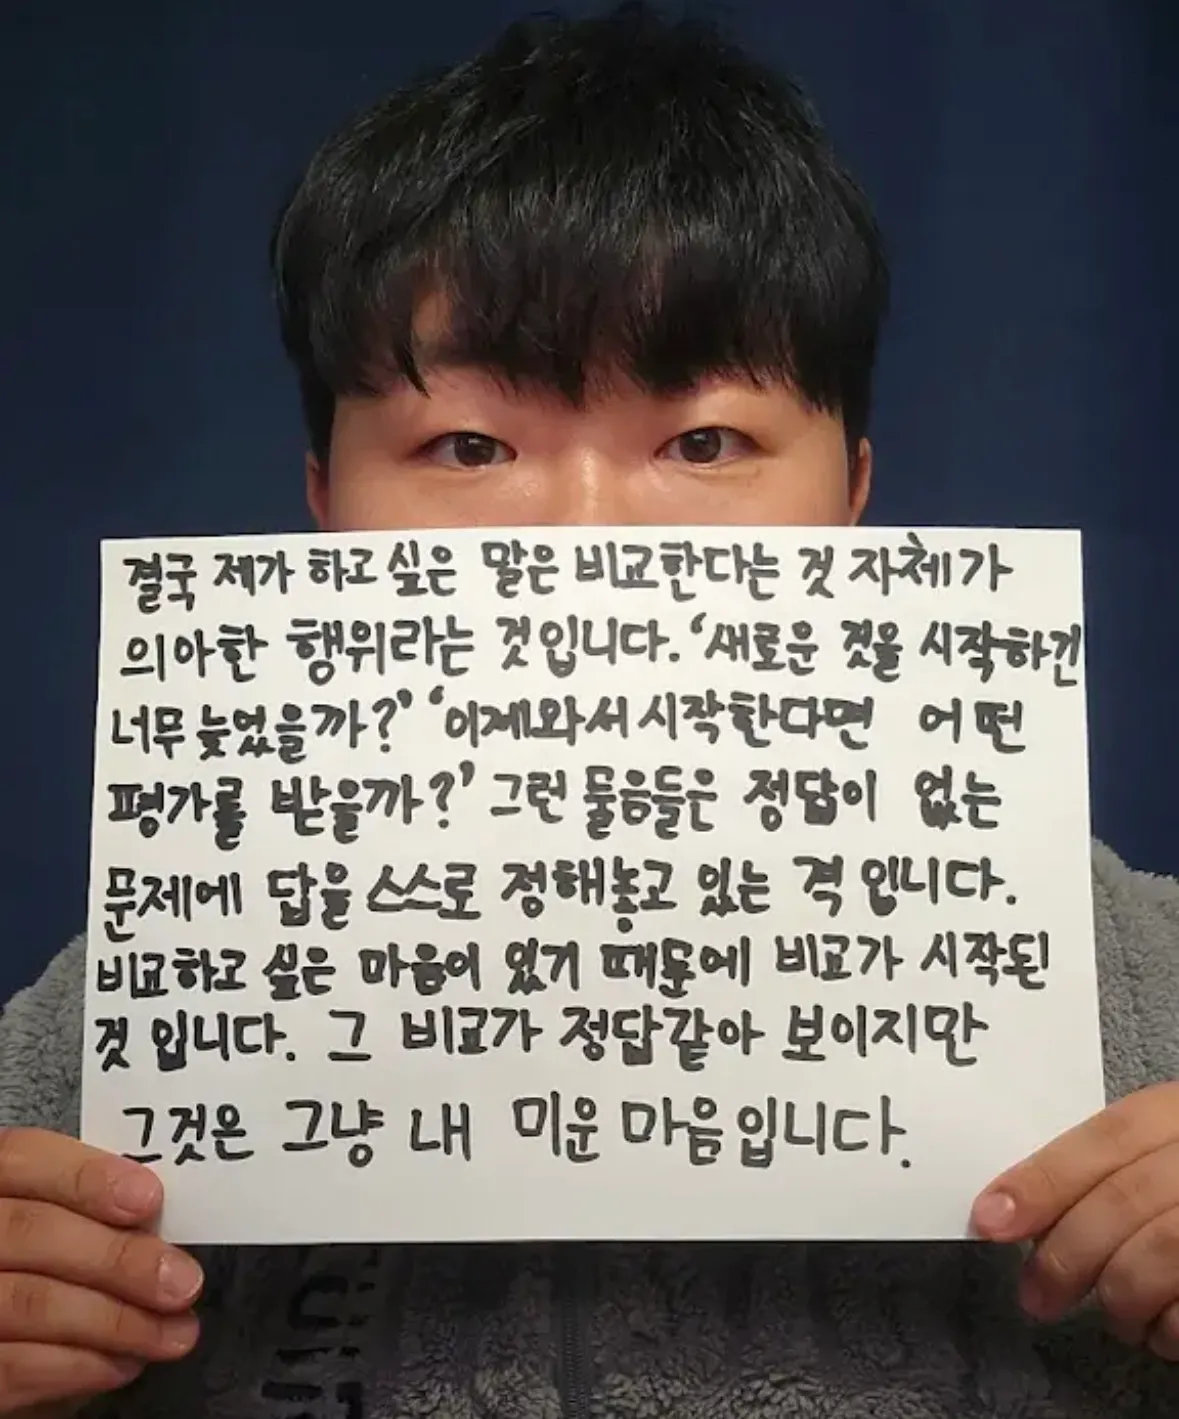 결국 제가 하고 싶은 말은 비교한다는 것 자체가
의아한 행위라는 것입니다. ‘새로운 것을 시작하긴
너무 늦었을까?’ ‘이제와서 시작한다면 어떤
평가를 받을까?’ 그런 물음들은 정답이 없는
문제에 답을 스스로 정해놓고 있는 격 입니다.
비교하고 싶은 마음이 있기 때문에 비교가 시작된
것 입니다. 그 비교가 정답같아 보이지만
그것은 그냥 내 미운 마음입니다.